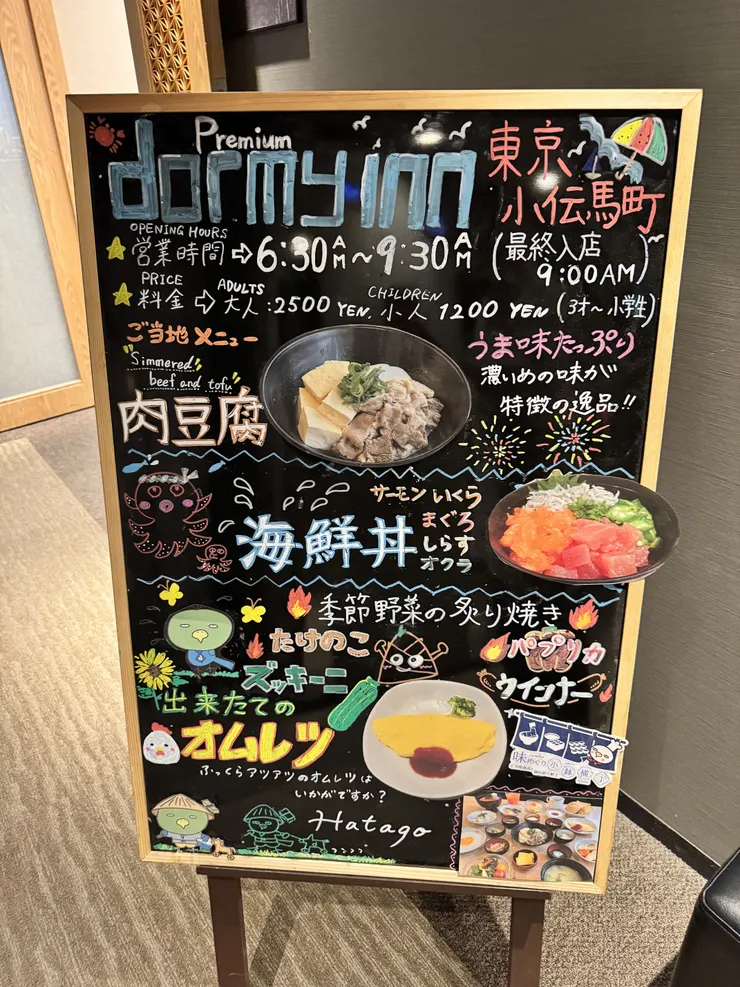 Premium
dormy inn
東京
小伝馬町
OPENING HOURS
営業時間⇨6:30AM~9:30AM (最終入店 9:00AM)
PRICE
料金⇨ ADULTS 大人:2500 YEN. CHILDREN 小人 1200 YEN (3才~小学生)
ご当地メニュー
"Simmered
beef and tofu"
肉豆腐
うま味たっぷり
濃いめの味が
特徴の逸品!!
海鮮丼
サーモン いくら
まぐろ
しらす
オクラ
季節野菜の炙り焼き
たけのこ
パプリカ
ズッキーニ
ウインナー
出来たての
オムレツ
ふっくらアツアツのオムレツは
いかがですか?
味めぐり小鉢横丁
Hatago